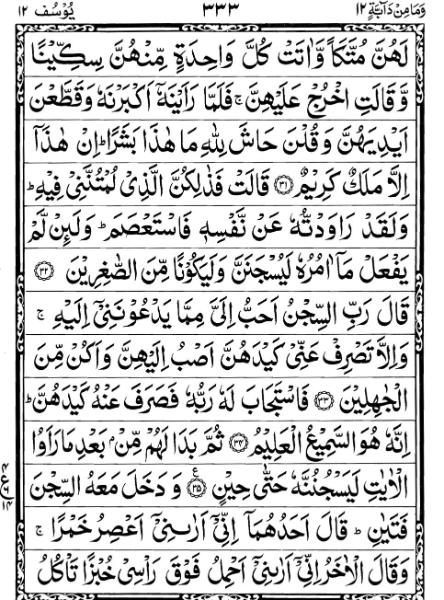 وَمَا مِنْ دَآبَّةٍ ١٢ ٣٣٣ يُوْسُف ١٢
لَهُنَّ مُتَّكَاً وَّاٰتَتْ كُلَّ وَاحِدَةٍ مِّنْهُنَّ سِكِّيْنًا
وَّقَالَتِ اخْرُجْ عَلَيْهِنَّ ۚ فَلَمَّا رَاَيْنَهٗۤ اَكْبَرْنَهٗ وَقَطَّعْنَ
اَيْدِيَهُنَّ وَقُلْنَ حَاشَ لِلّٰهِ مَا هٰذَا بَشَرًا ؕ اِنْ هٰذَاۤ
اِلَّا مَلَكٌ كَرِيْمٌ ﴿٣١﴾ قَالَتْ فَذٰلِكُنَّ الَّذِيْ لُمْتُنَّنِيْ فِيْهِ ؕ
وَلَقَدْ رَاوَدْتُّهٗ عَنْ نَّفْسِهٖ فَاسْتَعْصَمَ ؕ وَلَئِنْ لَّمْ
يَفْعَلْ مَاۤ اٰمُرُهٗ لَيُسْجَنَنَّ وَلَيَكُوْنًا مِّنَ الصّٰغِرِيْنَ ﴿٣٢﴾
قَالَ رَبِّ السِّجْنُ اَحَبُّ اِلَيَّ مِمَّا يَدْعُوْنَنِيْۤ اِلَيْهِ ۚ
وَاِلَّا تَصْرِفْ عَنِّيْ كَيْدَهُنَّ اَصْبُ اِلَيْهِنَّ وَاَكُنْ مِّنَ
الْجٰهِلِيْنَ ﴿٣٣﴾ فَاسْتَجَابَ لَهٗ رَبُّهٗ فَصَرَفَ عَنْهُ كَيْدَهُنَّ ؕ
اِنَّهٗ هُوَ السَّمِيْعُ الْعَلِيْمُ ﴿٣٤﴾ ثُمَّ بَدَا لَهُمْ مِّنْۢ بَعْدِ مَا رَاَوُا
الْاٰيٰتِ لَيَسْجُنُنَّهٗ حَتّٰى حِيْنٍ ﴿٣٥﴾ ع وَدَخَلَ مَعَهُ السِّجْنَ
فَتَيٰنِ ؕ قَالَ اَحَدُهُمَاۤ اِنِّيْۤ اَرٰىنِيْۤ اَعْصِرُ خَمْرًا ۚ
وَقَالَ الْاٰخَرُ اِنِّيْۤ اَرٰىنِيْۤ اَحْمِلُ فَوْقَ رَاْسِيْ خُبْزًا تَاْكُلُ